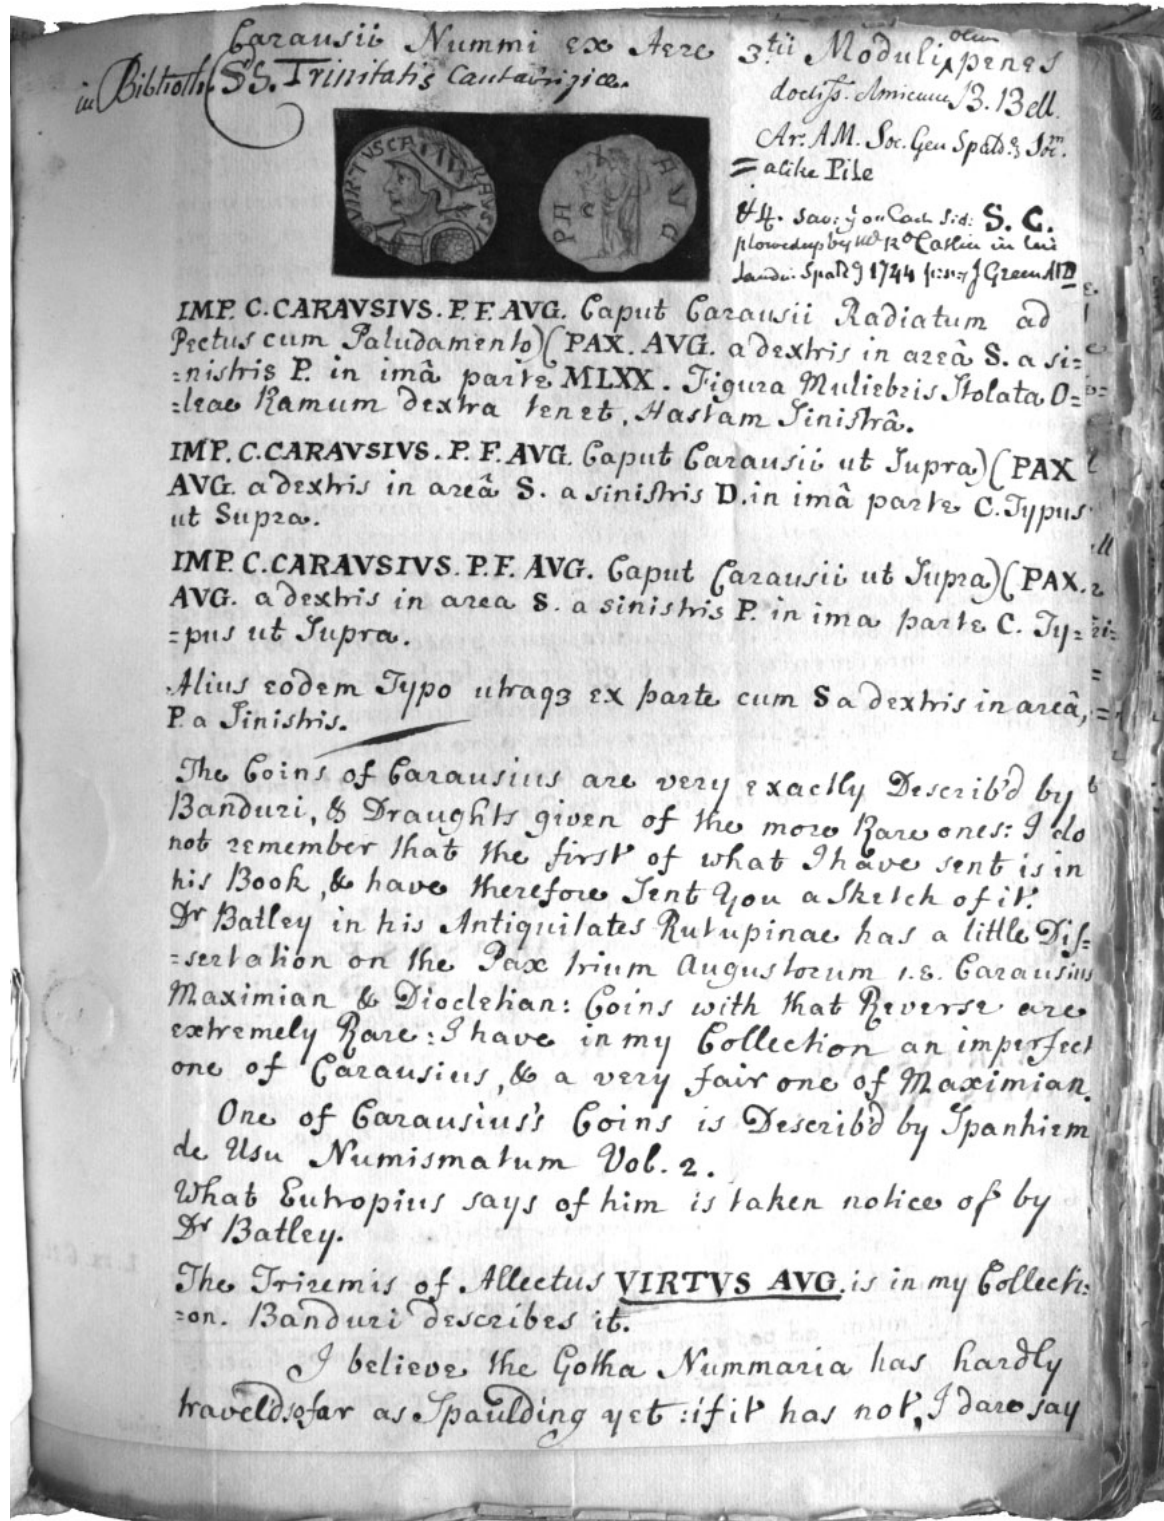 Carausii Nummi ex Aere 3.tii Moduli olim penes
in Biblioth. SS. Trinitatis Cantabrigiae.
doctiss. Amicum B. Bell.
Ar. A.M. Soc. Gen Spald. & Soc.
= alike Pile
VIRTVS CARAVSI
PA AVG
&4. sav: on Each sid: S. C.
plowed up by in his
Lands. Spald 1744 J Green MD
IMP. C. CARAVSIVS. P. F. AVG. Caput Carausii Radiatum ad
Pectus cum Paludamento)( PAX. AVG. a dextris in areâ S. a si=
=nistris P. in imâ parte MLXX. Figura Muliebris Stolata O=
=leae Ramum dextra tenet, Hastam Sinistrâ.
IMP. C. CARAVSIVS. P. F. AVG. Caput Carausii ut Supra)( PAX
AVG. a dextris in areâ S. a sinistris D. in imâ parte C. Typus
ut Supra.
IMP. C. CARAVSIVS. P. F. AVG. Caput Carausii ut Supra)( PAX.
AVG. a dextris in area S. a sinistris P. in ima parte C. Ty=
=pus ut Supra.
Alius eodem Typo utraqȝ ex parte cum S a dextris in areâ,
P. a Sinistris.
The Coins of Carausius are very exactly Describ'd by
Banduri, & Draughts given of the more Rare ones: I do
not remember that the first of what I have sent is in
his Book, & have therefore Sent You a Sketch of it.
Dr Batley in his Antiquitates Rutupinae has a little Dis=
=sertation on the Pax trium Augustorum i.e. Carausius
Maximian & Diocletian: Coins with that Reverse are
extremely Rare: I have in my Collection an imperfect
one of Carausius, & a very fair one of Maximian.
One of Carausius's Coins is Describ'd by Spanhiem
de Usu Numismatum Vol. 2.
What Eutropius says of him is taken notice of by
Dr Batley.
The Triremis of Allectus VIRTVS AVG. is in my Collecti=
=on. Banduri describes it.
I believe the Gotha Nummaria has hardly
traveld so far as Spaulding yet: if it has not, I dare say